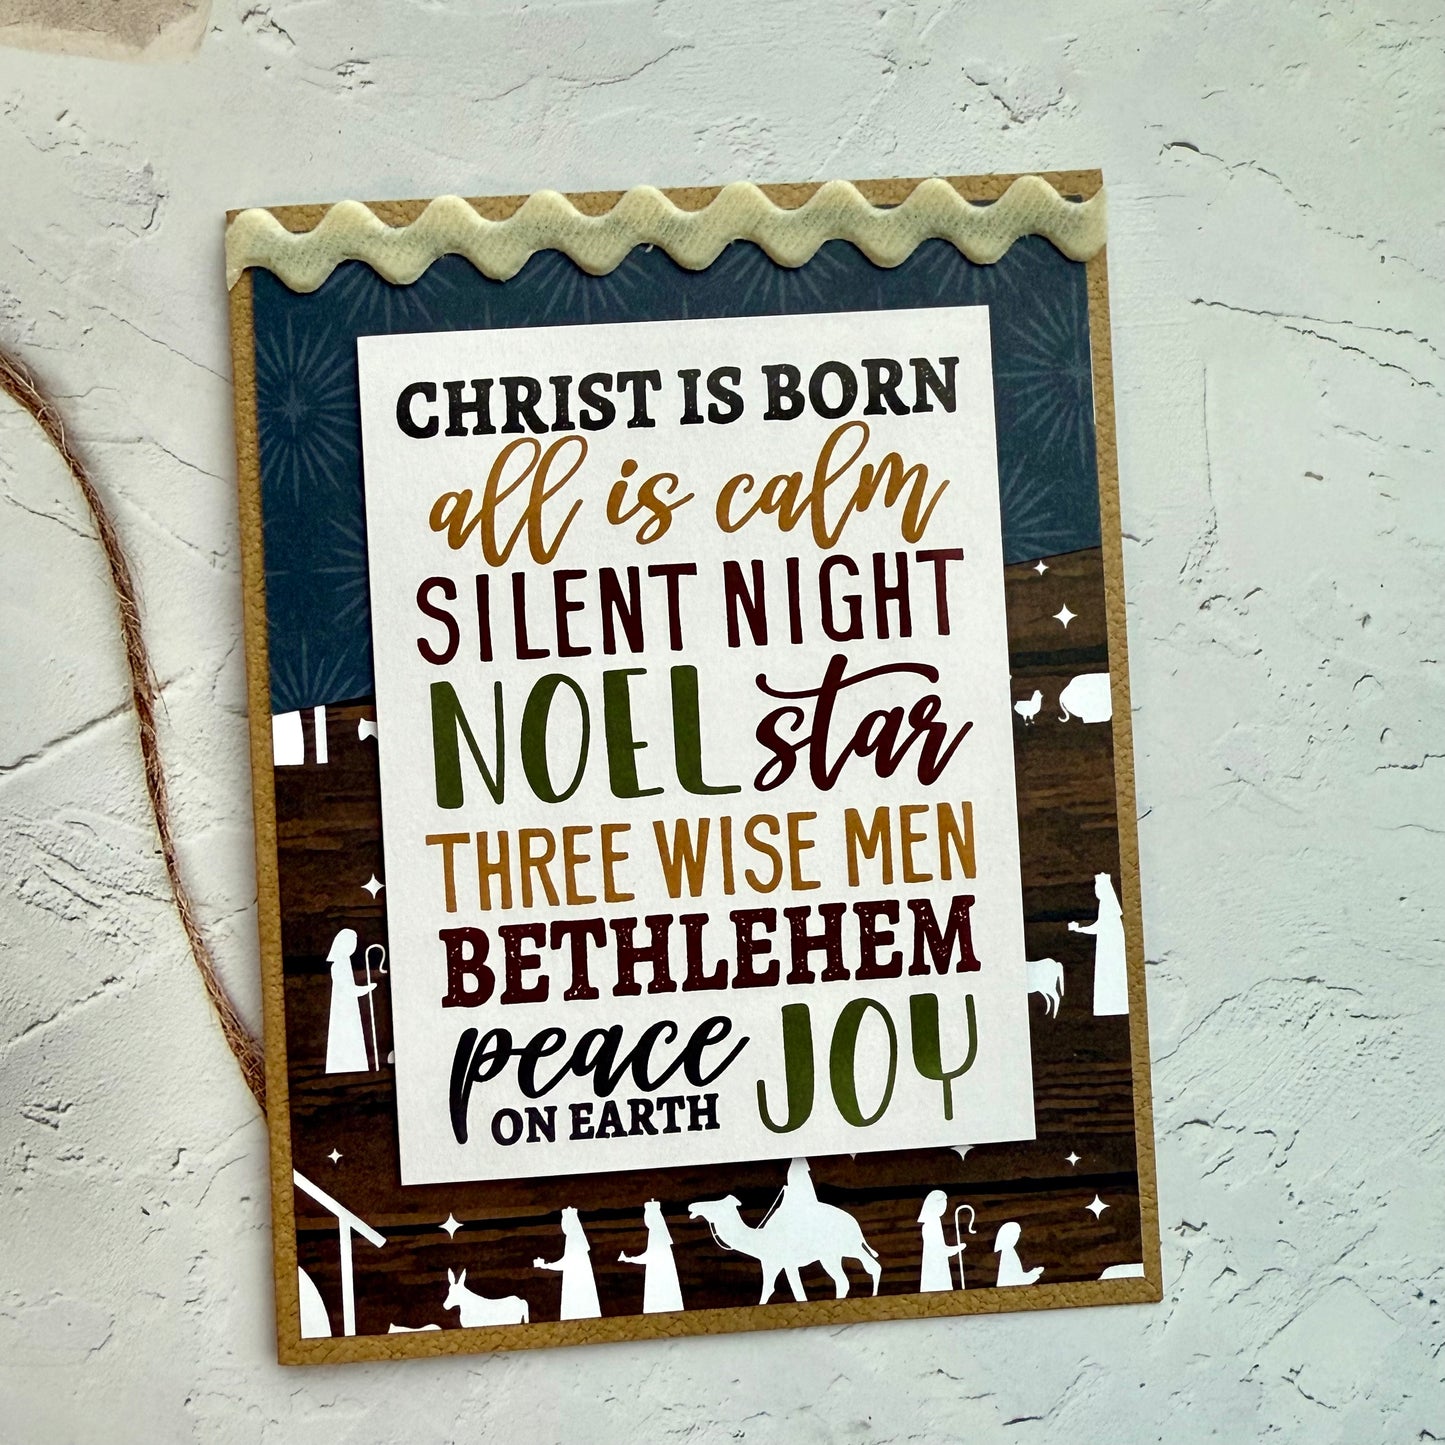 CHRIST IS BORN
all is calm
SILENT NIGHT
NOEL star
THREE WISE MEN
BETHLEHEM
peace JOY
ON EARTH